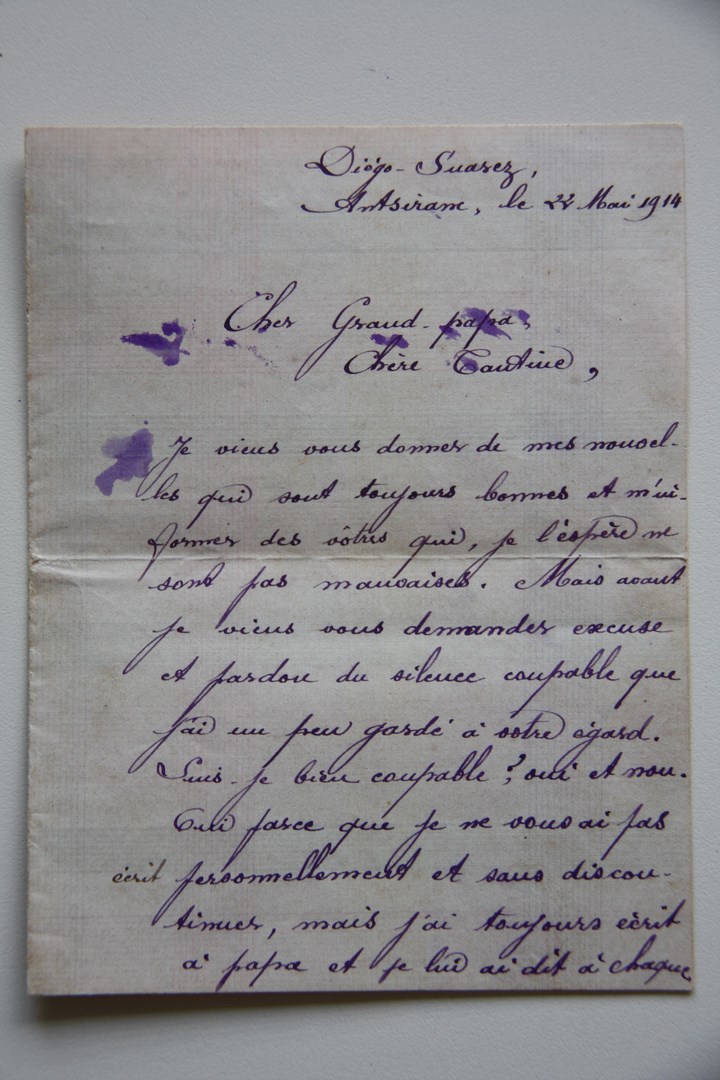 Diégo-Suarez,
Antsirane, le 22 Mai 1914
Cher Grand-papa,
Chère Tantine,
Je viens vous donner de mes nouvel-
les qui sont toujours bonnes et m'in-
former des vôtres qui, je l'espère ne
sont pas mauvaises. Mais avant
je viens vous demander excuse
et pardon du silence coupable que
j'ai un peu gardé à votre égard.
Suis-je bien coupable ? oui et non.
Oui parce que je ne vous ai pas
écrit personnellement et sans discon-
tinuer, mais j'ai toujours écrit
à papa et je lui ai dit à chaque